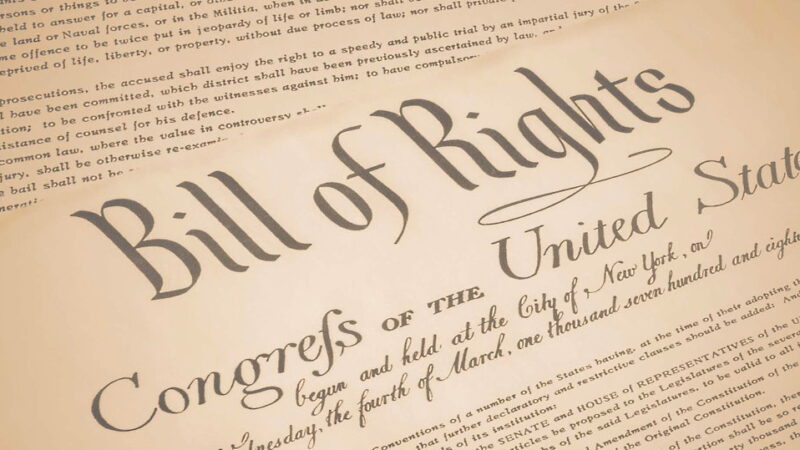 or things to be
held to answer for a capital, or
land or Naval forces, or in the Militia, when in
me offence to be twice put in jeopardy of life or limb; nor
eprived of life, liberty, or property, without due process of law; nor shall private
prosecutions, the accused shall enjoy the right to a speedy and public trial by an impartial jury of the
l have been committed, which district shall have been previously ascertained by law,
tion; to be confronted with the witnesses against him; to have compulsor
istance of counsel for his defence.
common law, where the value in controversy
jury, shall be otherwise re-exami
e bail shall not be
Bill of Rights
Congreſs OF THE United State
begun and held at the City of New York, on
dnesday, the fourth of March, one thousand seven hundred and eight
onventions of a number of the States having, at the time of their adopting th
that further declaratory and restrictive clauses should be added: And
of its institution:
the SENATE and HOUSE of REPRESENTATIVES of the U
ticles be proposed to the Legislatures of the several
of the said Legislatures, to be valid to all
Amendment of the Constitution of the
the Original Constitution.
of the Constitution,
shall be so
thousand